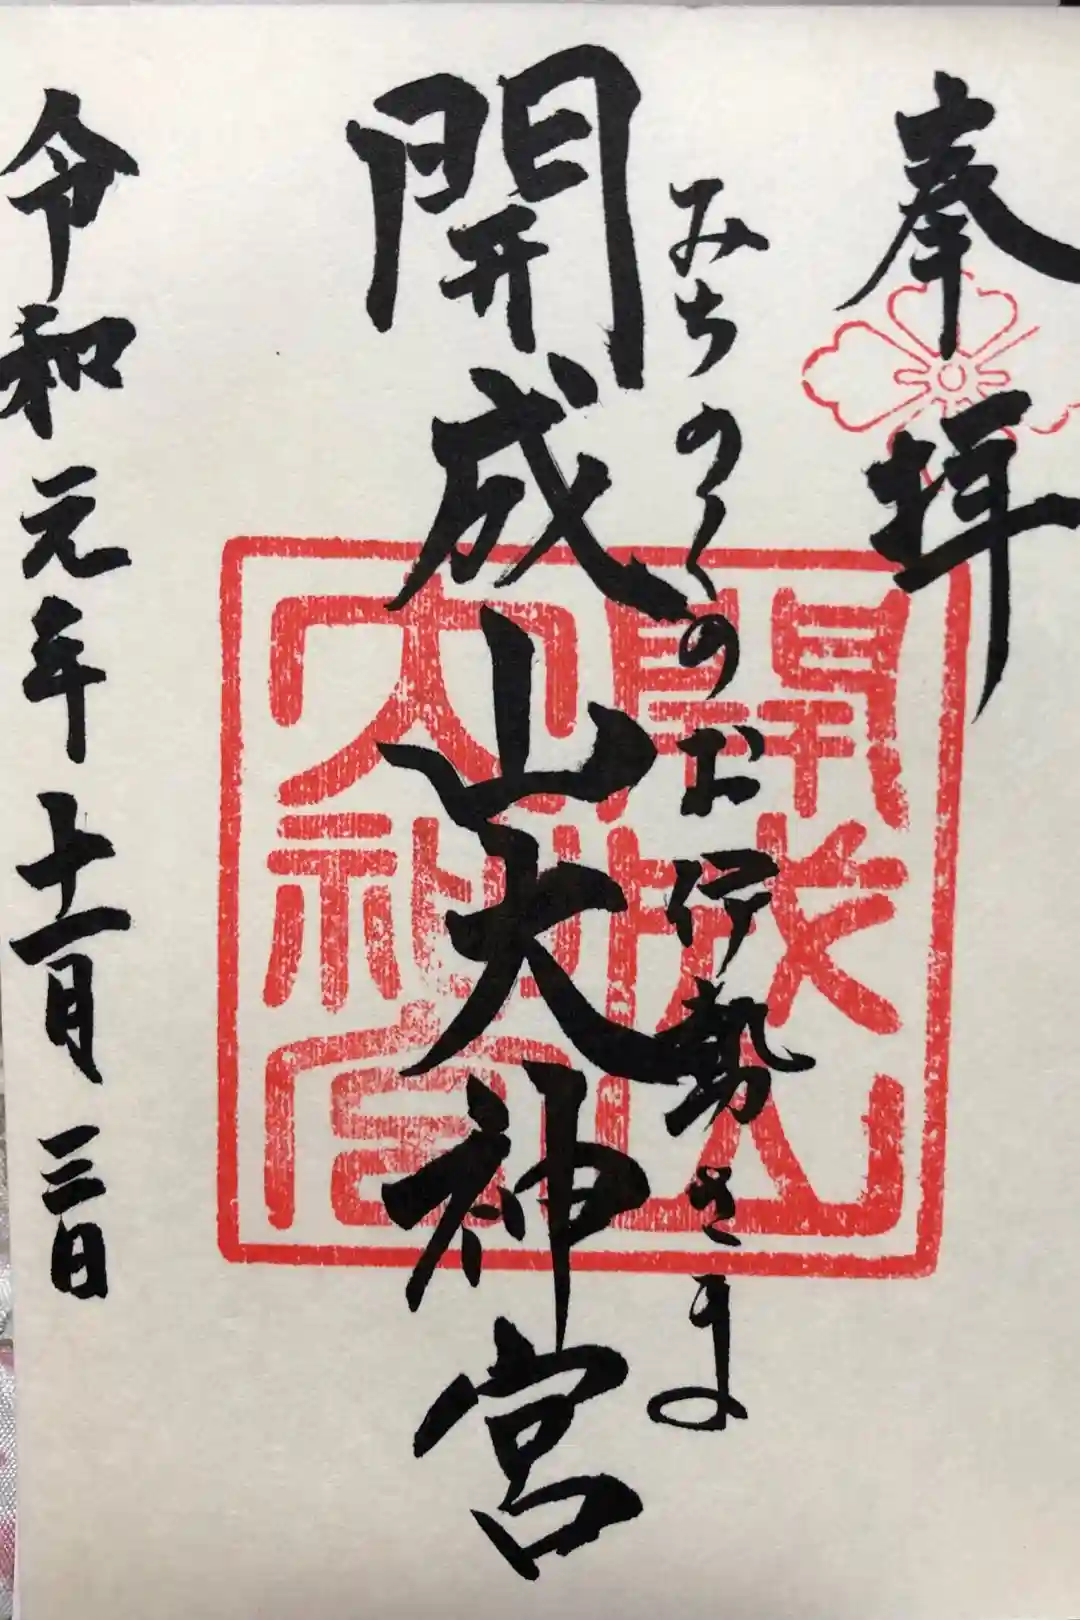 奉拝
みちのくのお伊勢さま
開成山大神宮
開成山
大神宮
令和元年十一月三日